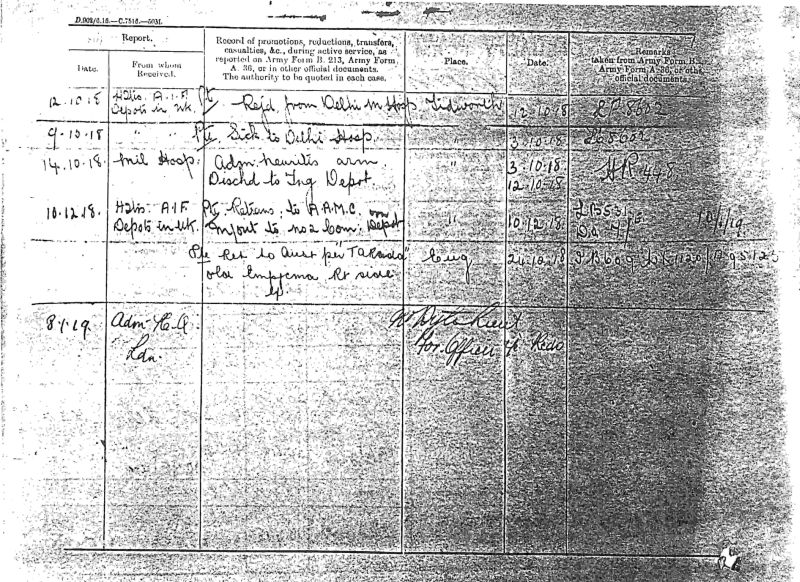 D.908/6.16.—C.7516.—503L.
Report.
Record of promotions, reductions, transfers,
casualties, &c., during active service, as
reported on Army Form B. 213, Army Form
A. 36, or in other official documents.
The authority to be quoted in each case.
Place.
Date.
Remarks
taken from Army Form B.
Army Form A. 36, or other
official documents.
Date.
From whom
Received.
12.10.18 Hdqs. A.I.F. Depots in Uk. Pte Rejd from Delhi M Hosp Tidworth 12-10-18 8602
9-10-18 " " Pte Sick to Delhi Hosp. " 3-10-18 8602
14.10.18. Mil Hosp. Adm neuritis arm. " 3-10-18 HR 448
Dischd to Tng Depot. 12-10-18
10.12.18. Hdqs. A.I.F. Pte Retrans. to A.A.M.C. on " 10.12.18. 10/1/19.
Depots in Uk. to no 2 Com: Depot
Pte Ret to Aust per "Takada" Eng
old Empyema Rt side
8.1.19. Adm H.Q. Lieut
Ldn. for Officer i/c Recds